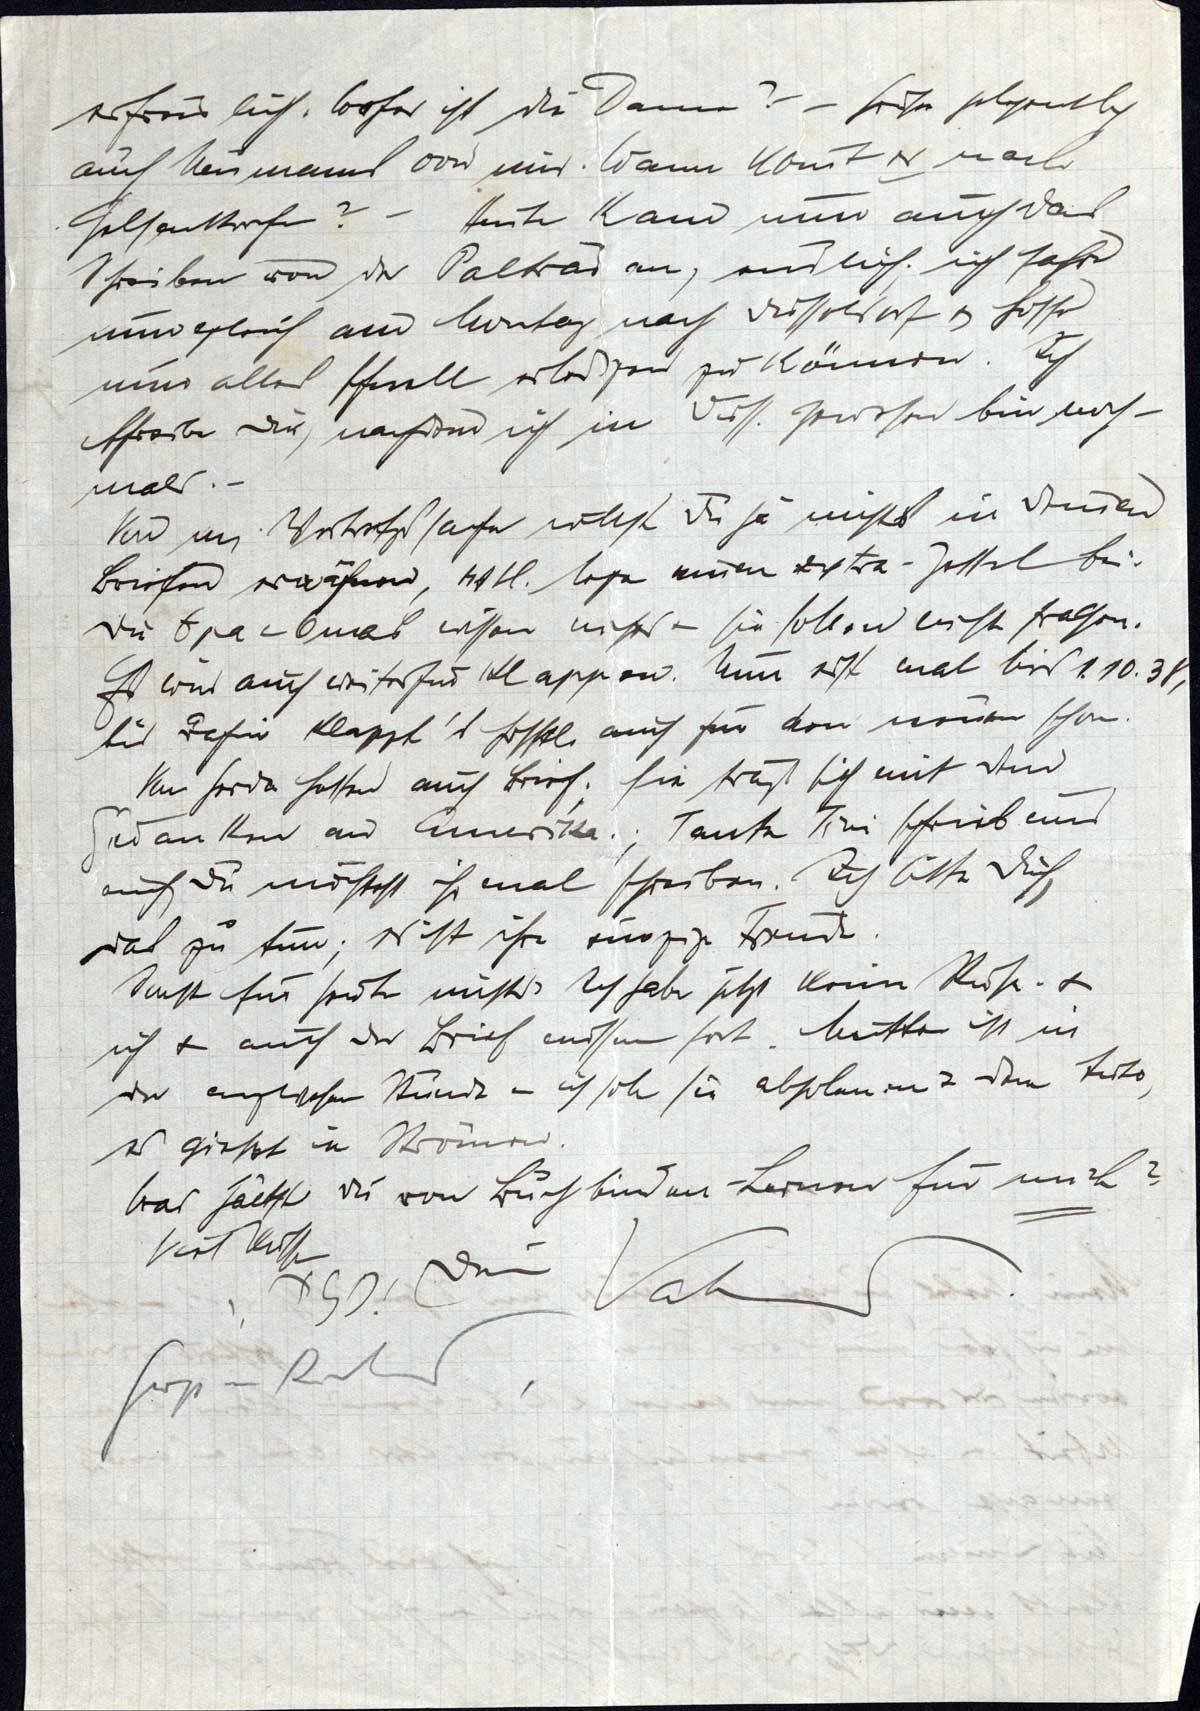 erfreulich. Woher ist die Dame? – – Grüße gelegentlich
auch Neumanns von mir. Wann kommt er nach
Gelsenkirchen? – Heute kam nun auch das
Schreiben von der Paltreu an, endlich. ich fahre
nun gleich am Montag nach Düsseldorf & hoffe
nun alles schnell erledigen zu können. Ich
schreibe Dir, nachdem ich in Düss. gewesen bin noch-
mals. –
Von uns. Vertragssache willst Du ja nichts in Deinen
Briefen erwähnen, evtl. lege einen extra-Zettel bei.
Die Opa-Omas wissen nichts – sie sollen nicht fragen.
Es wird auch weiterhin klappen. Nun erst mal bis 1.10.38,
bis dahin klappt's hoffentl. auch für den neuen schon.
Von Herda hatten auch Brief. Sie trägt sich mit dem
Gedanken an Amerika.; Tante Tini schrieb uns
auch, Du möchtest ihr mal schreiben. Ich bitte Dich,
das zu tun; es ist ihre einzige Freude.
Sonst für heute nichts. Ich habe jetzt keine Ruhe. &
ich & auch der Brief müssen fort. Mutter ist in
der englischen Stunde – ich soll sie abholen m. dem Auto,
es giesst in Strömen.
Was hältst Du von Buchbinden-Lernen für mich?
Viel Küsse
Dein Vater